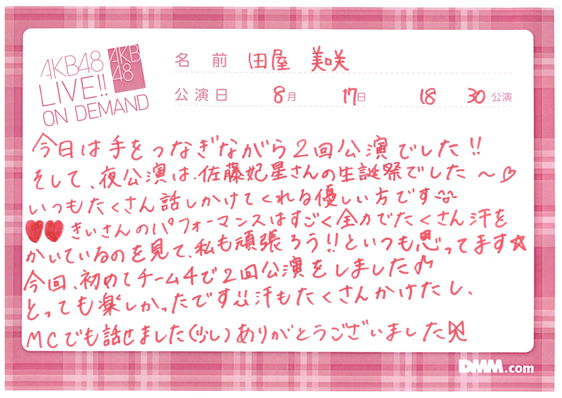 AKB48
LIVE!!
ON DEMAND
AKB
48
名前 田屋 美咲
公演日 8月 17日 18 30 公演
今日は手をつなぎながら2回公演でした!!
そして、夜公演は、佐藤妃星さんの生誕祭でした〜♡
いつもたくさん話しかけてくれる優しい方です
きぃさんのパフォーマンスはすごく全力でたくさん汗を
かいているのを見て、私も頑張ろう!!といつも思ってます☆
今回、初めてチーム4で2回公演をしました♪
とっても楽しかったです!!汗もたくさんかけたし、
MCでも話せました(少し)ありがとうございました
DMM.com